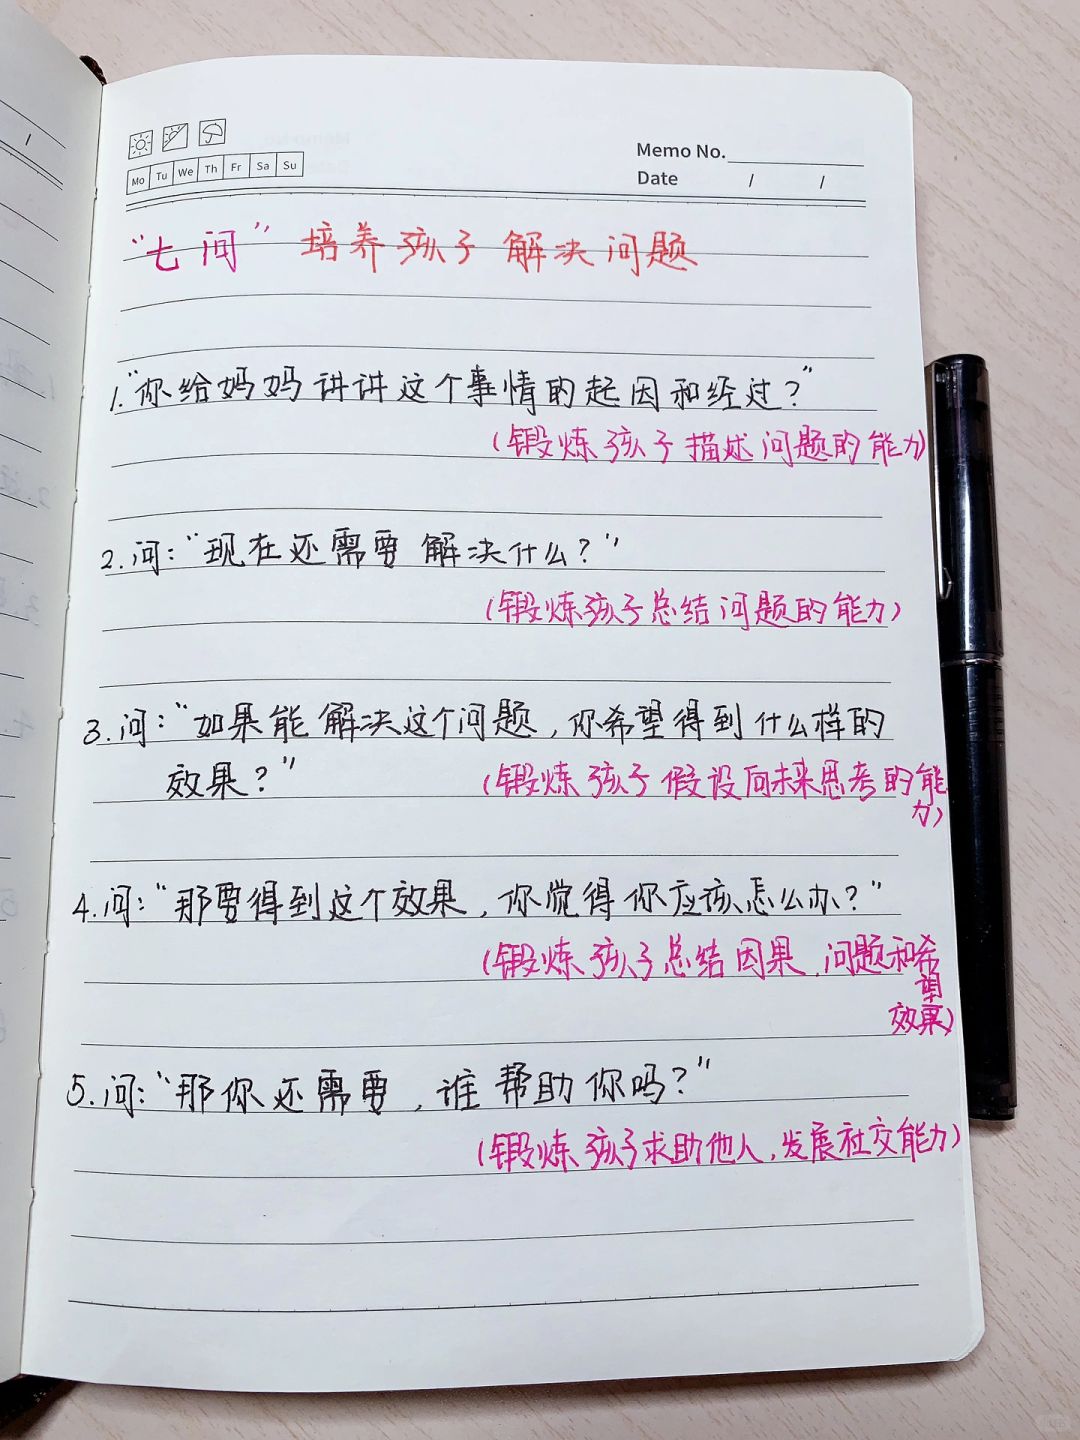 Mo Tu We Th Fr Sa Su
Memo No.
Date / /
“七问” 培养孩子解决问题
1.“你给妈妈讲讲这个事情的起因和经过?”
(锻炼孩子描述问题的能力)
2.问:“现在还需要解决什么?”
(锻炼孩子总结问题的能力)
3.问:“如果能解决这个问题,你希望得到什么样的
效果?”
(锻炼孩子假设向未来思考的能
力)
4.问:“那要得到这个效果,你觉得你应该怎么办?”
(锻炼孩子总结因果,问题和希
望
效果)
5.问:“那你还需要,谁帮助你吗?”
(锻炼孩子求助他人,发展社交能力)